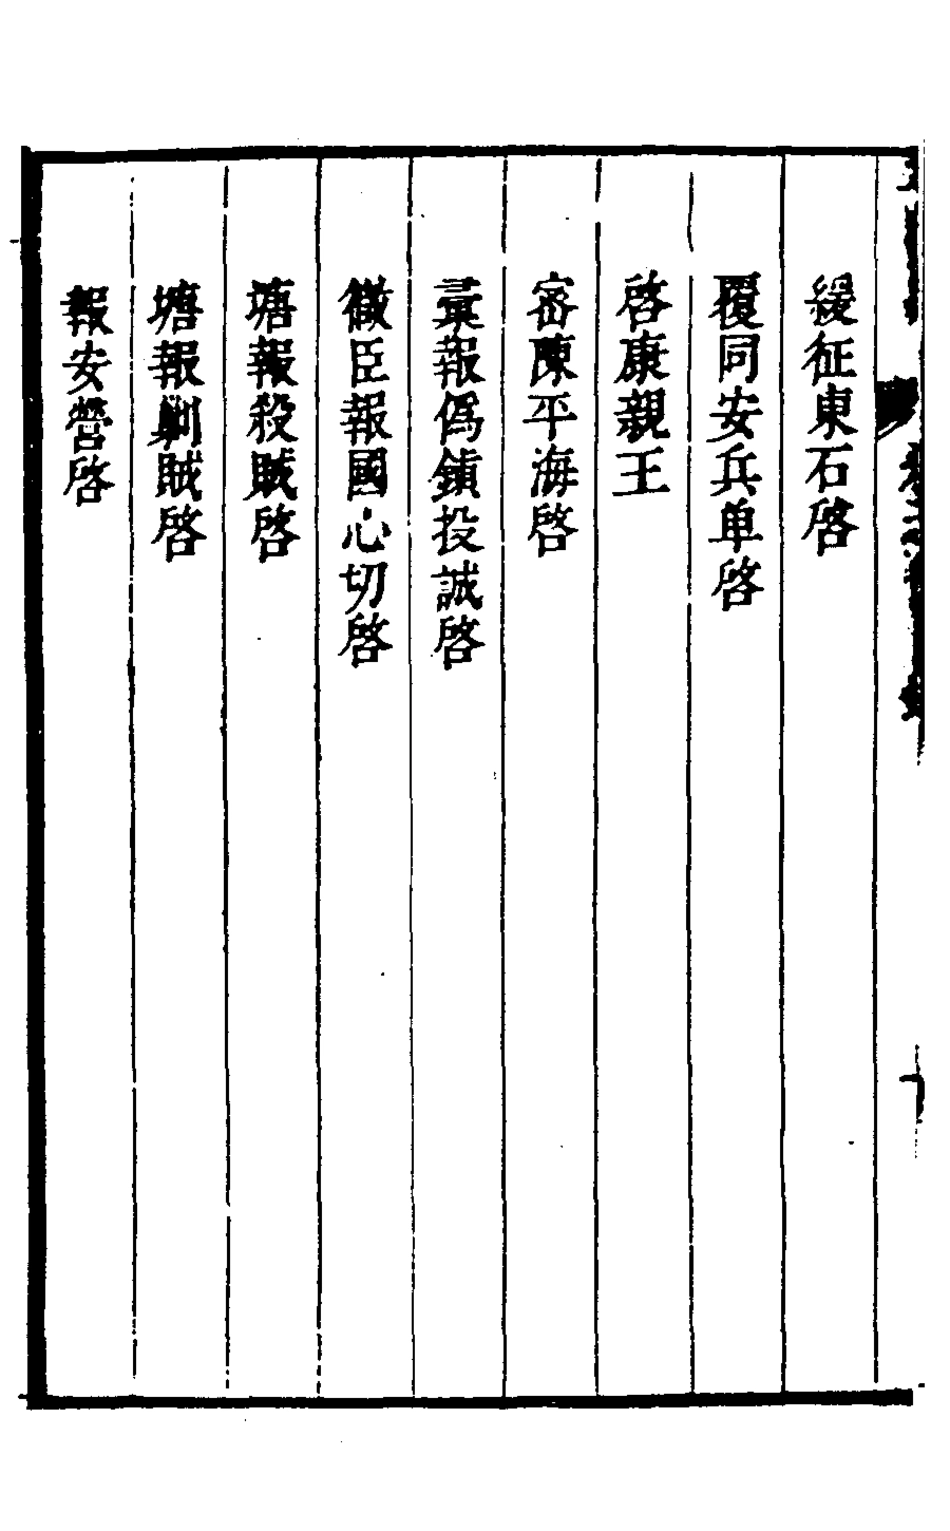 緩征東石啓
覆同安兵单啓
啓康親王
密陳平海啓
彙報僞鎮投誠啓
微臣報國心切啓
塘報殺賊啓
塘報剿賊啓
報安營啓